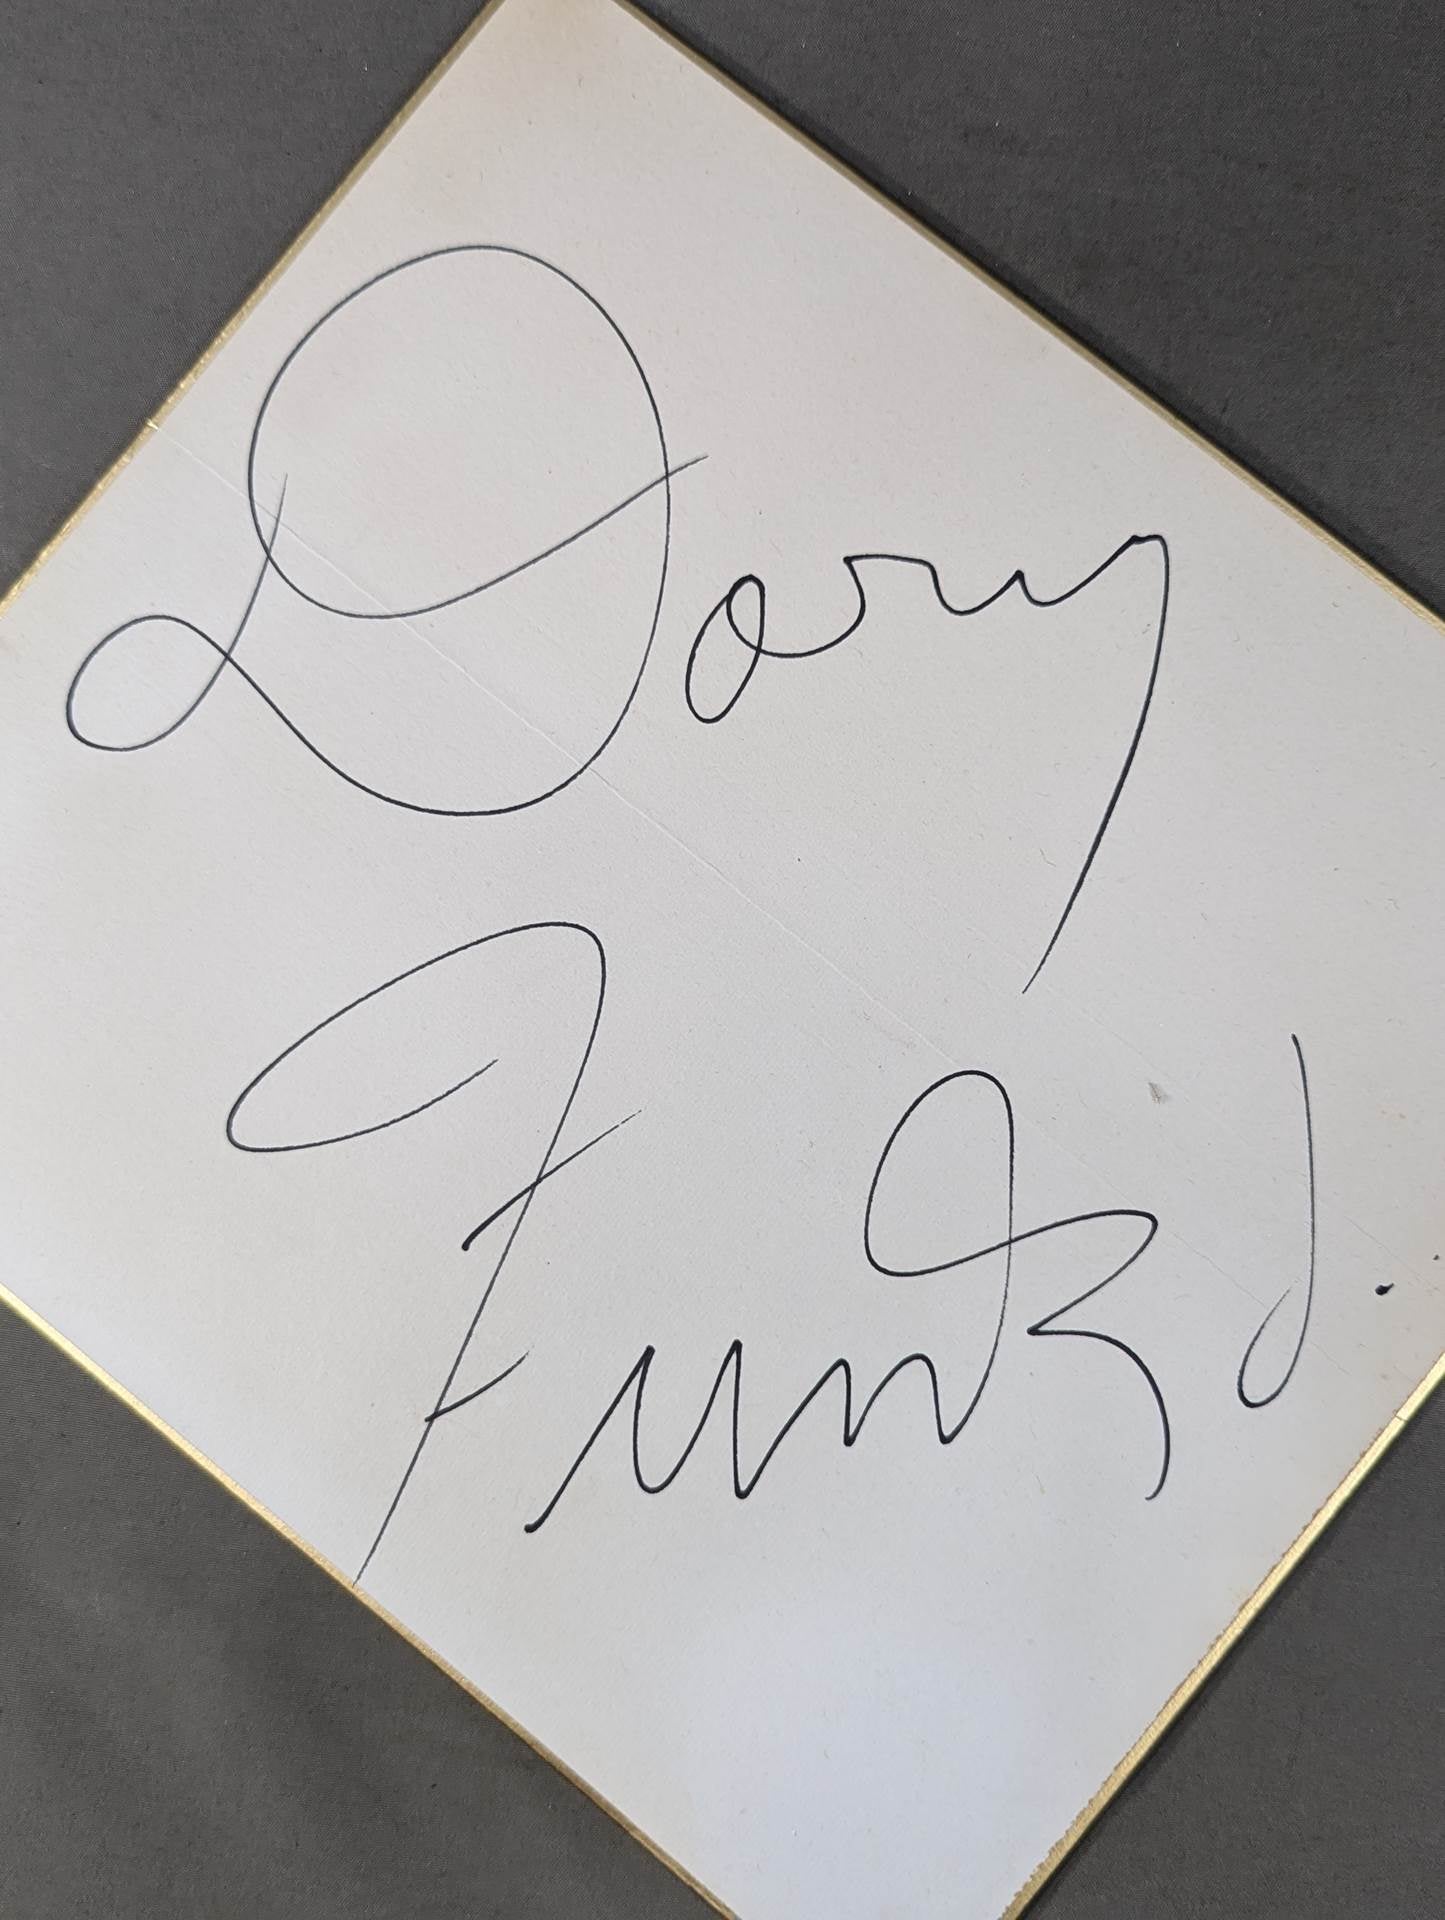 Dory
Funk J.